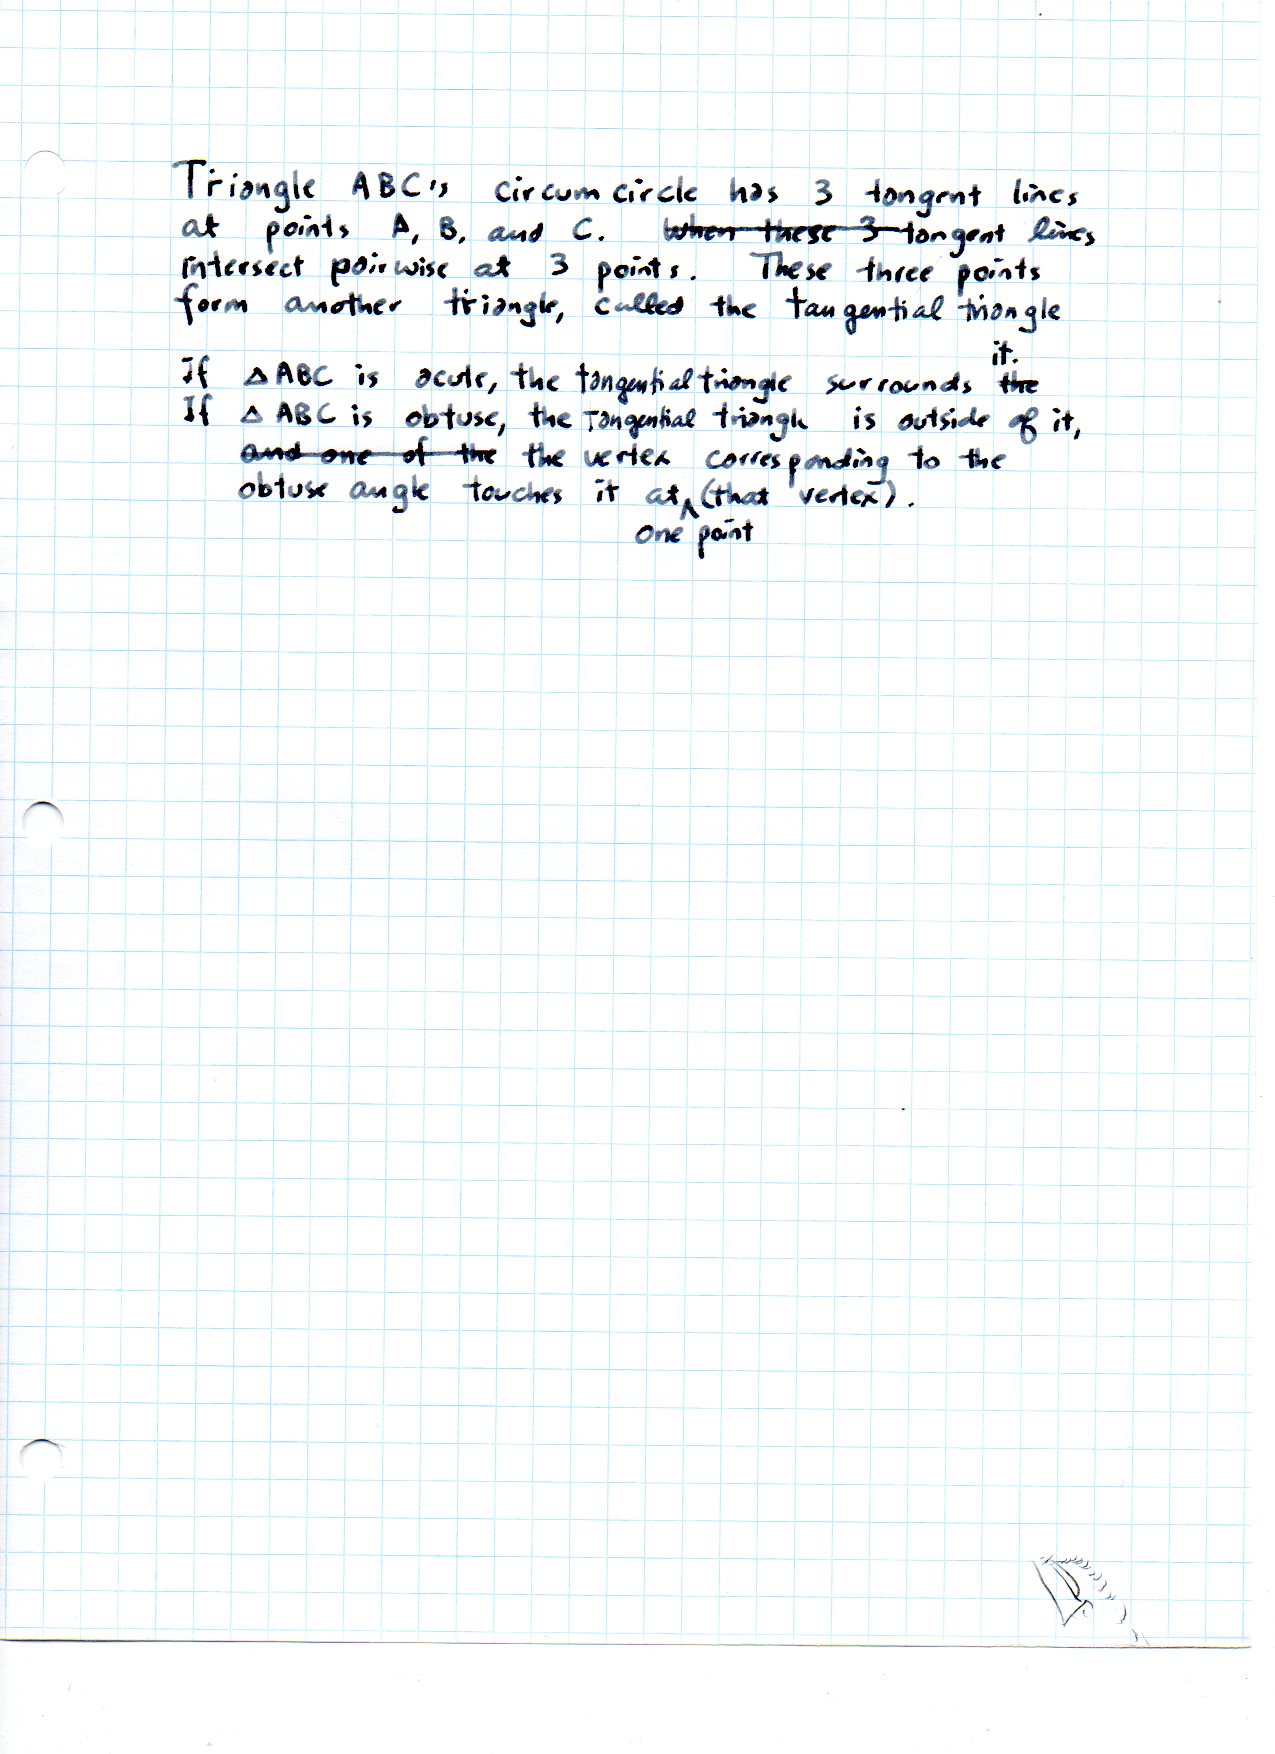 Triangle ABC's circumcircle has 3 tangent lines
at points A, B, and C. When these 3 tangent lines
intersect pairwise at 3 points. These three points
form another triangle, called the tangential triangle
it.
If △ ABC is acute, the tangential triangle surrounds the
If △ ABC is obtuse, the tangential triangle is outside of it,
and one of the the vertex corresponding to the
obtuse angle touches it at ^ (that vertex).
one point